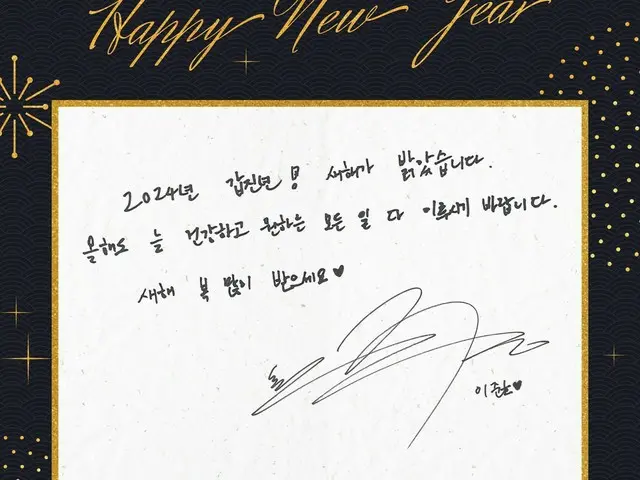 Happy New Year
2024년 갑진년 새해가 밝았습니다.
올해도 늘 건강하고 원하는 모든 일 다 이루시게 바랍니다.
새해 복 많이 받으세요♥
이준호♥